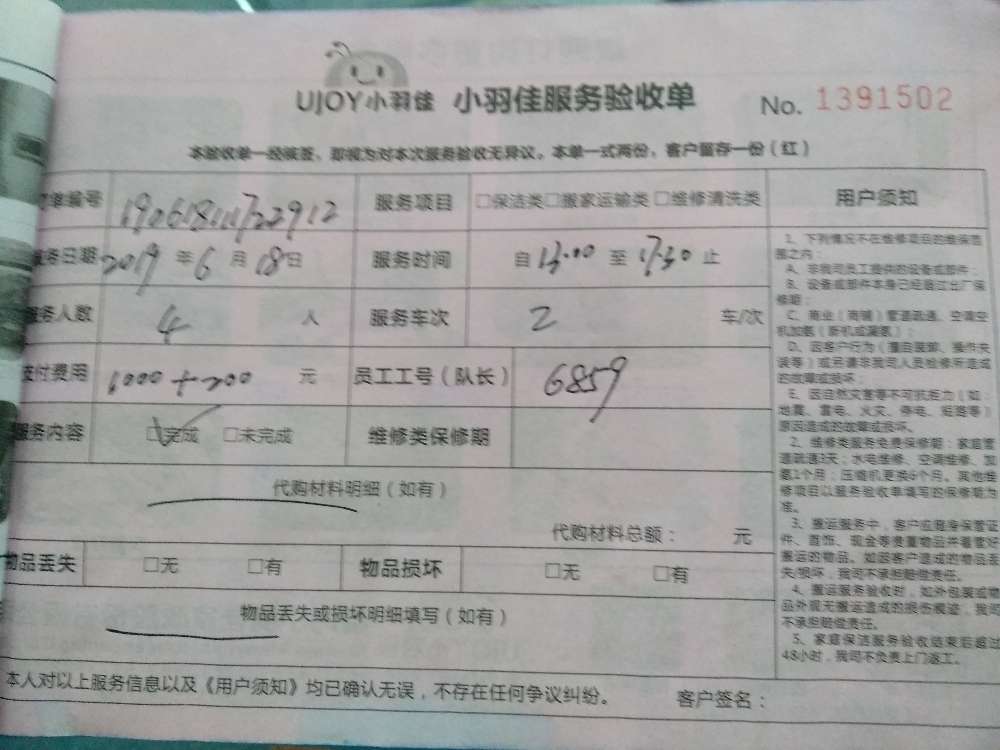 UJOY小羽佳 小羽佳服务验收单 No. 1391502
本验收单一经核签，即视为对本次服务验收无异议。本单一式两份，客户留存一份（红）
单编号 服务项目 □保洁类□搬家运输类 □维修清洗类 用户须知
务日期 2019 年 6 月 18 日 服务时间 自 13:00 至 17:30 止
服务人数 4 人 服务车次 2 车/次
支付费用 1000+200 元 员工工号（队长） 6859
服务内容 □完成 □未完成 维修类保修期
代购材料明细（如有）
代购材料总额： 元
物品丢失 □无 □有 物品损坏 □无 □有
物品丢失或损坏明细填写（如有）
本人对以上服务信息以及《用户须知》均已确认无误，不存在任何争议纠纷。 客户签名：
1、下列情况不在维修项目的维保范
围之内：
A、非我司员工提供的设备或部件；
B、设备或部件本身已经超过出厂保
修期；
C、商业（商铺）管道疏通、空调空
机加氟（新机或漏氟）；
D、因客户行为（擅自装卸、操作失
误等）或邀请非我司人员检修所造成
的故障或损坏；
E、因自然灾害等不可抗胜力（如：
地震、雷电、火灾、停电、短路等）
原因造成的故障或损坏。
2、维修类服务免费保修期：家庭管
道疏通3天；水电维修、空调维修、加
氟1个月；压缩机更换6个月。其他维
修项目以服务验收单填写的保修期为
准。
3、搬运服务中，客户应随身保管证
件、首饰、现金等贵重物品并看管好
搬运的物品。如因客户造成的物品丢
失/损坏，我司不承担赔偿责任。
4、搬运服务验收时，如外包装或物
品外观无搬运造成的损伤痕迹，我司
不承担赔偿责任。
5、家庭保洁服务验收结束后超过
48小时，我司不负责上门返工。